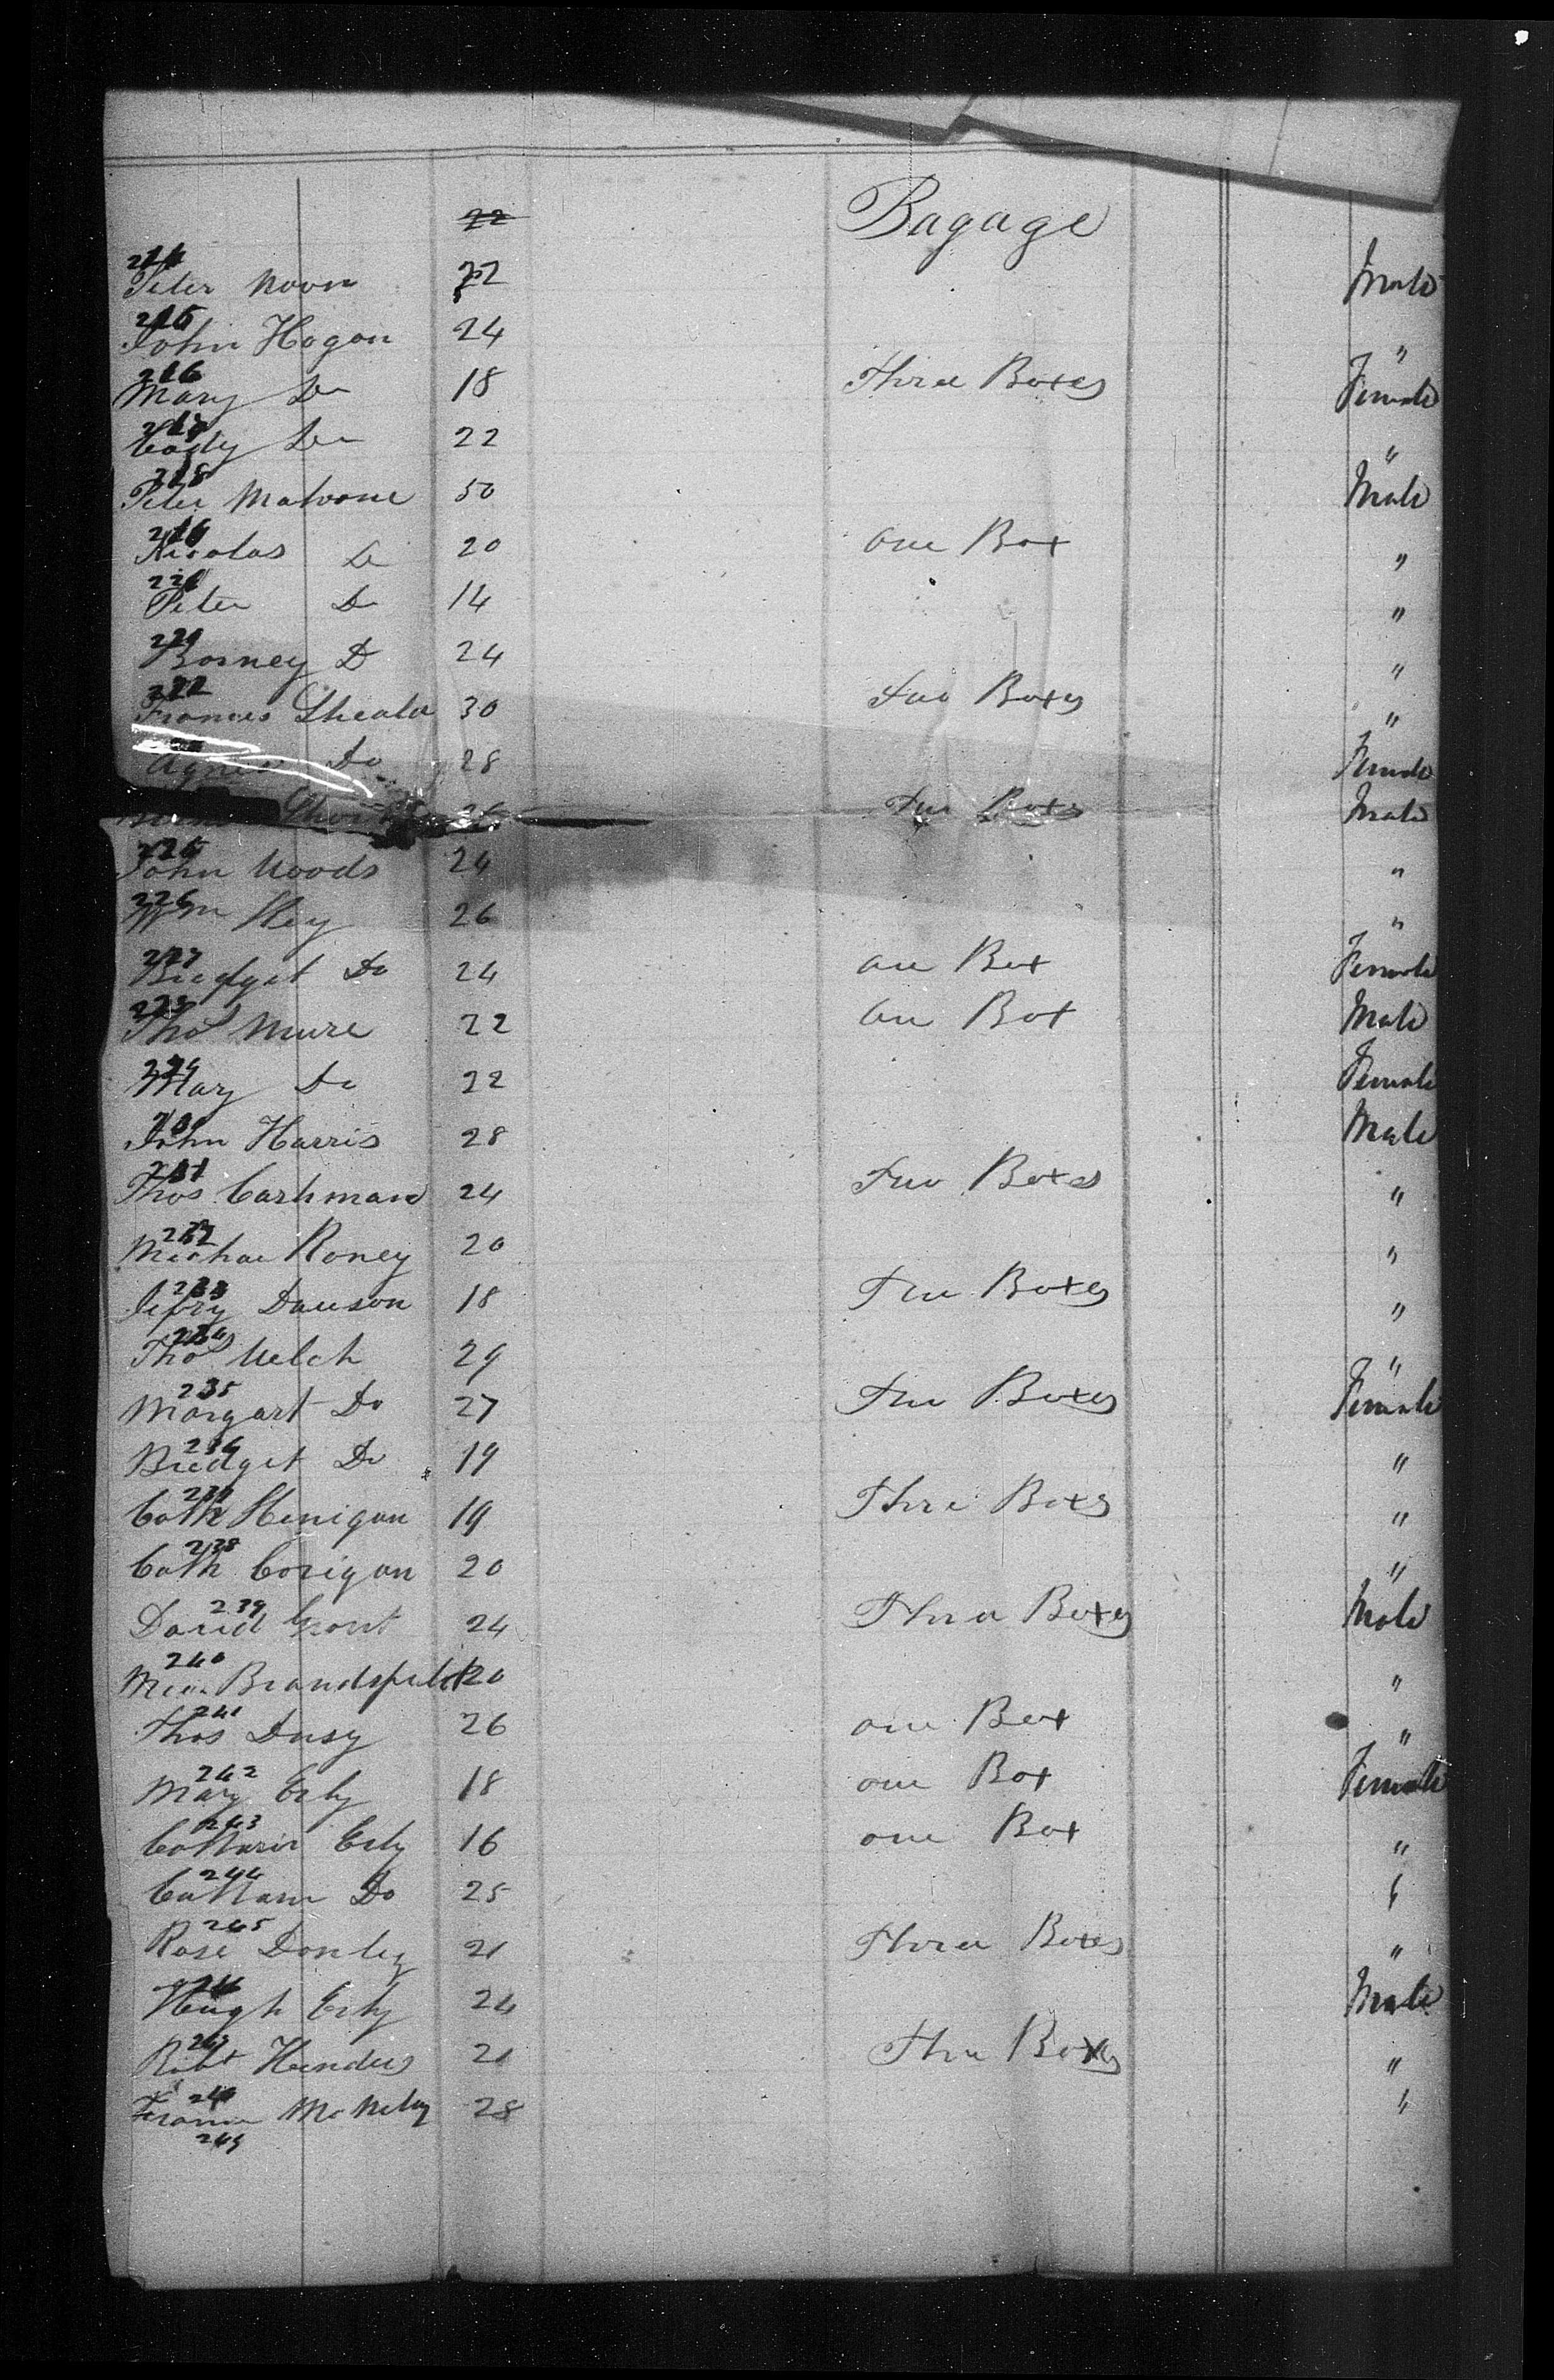 22 Bagage
214
Peter Noon 22 Male
215
John Hogan 24 "
216
Mary Do 18 Three Boxes Female
217
Do 22 "
218
Peter Malvone 50 Male
Nicolas Do 20 one Box "
Peter Do 14 "
Borney D 24 "
222
Frances 30 Two Boxes "
Agnes Do 28 Female
26 Two Boxes Male
225
John Woods 24 "
226
Wm 26 "
227
Bredget Do 24 one Box Female
Thos Mure 22 one Box Male
229
Mary Do 22 Female
230
John Harris 28 Male
231
Thos Cashman 24 Two Boxes "
232
Michae Roney 20 "
233
Dawson 18 Two Boxes "
234
Thos Welch 29 "
235
Margart Do 27 Two Boxes Female
236
Bredget Do 19 "
237
Cath Henigan 19 Thre Boxes "
238
Cath Corigan 20 "
239
David Grant 24 Three Boxes Male
240
20 "
241
Thos Dusy 26 one Box "
242
Mary 18 one Box Female
243
16 one Box "
244
Do 25 "
245
Rose Donley 21 Three Boxes "
246
Hugh 24 Male
247
Robt 21 Thre Boxes "
248
28 "
249